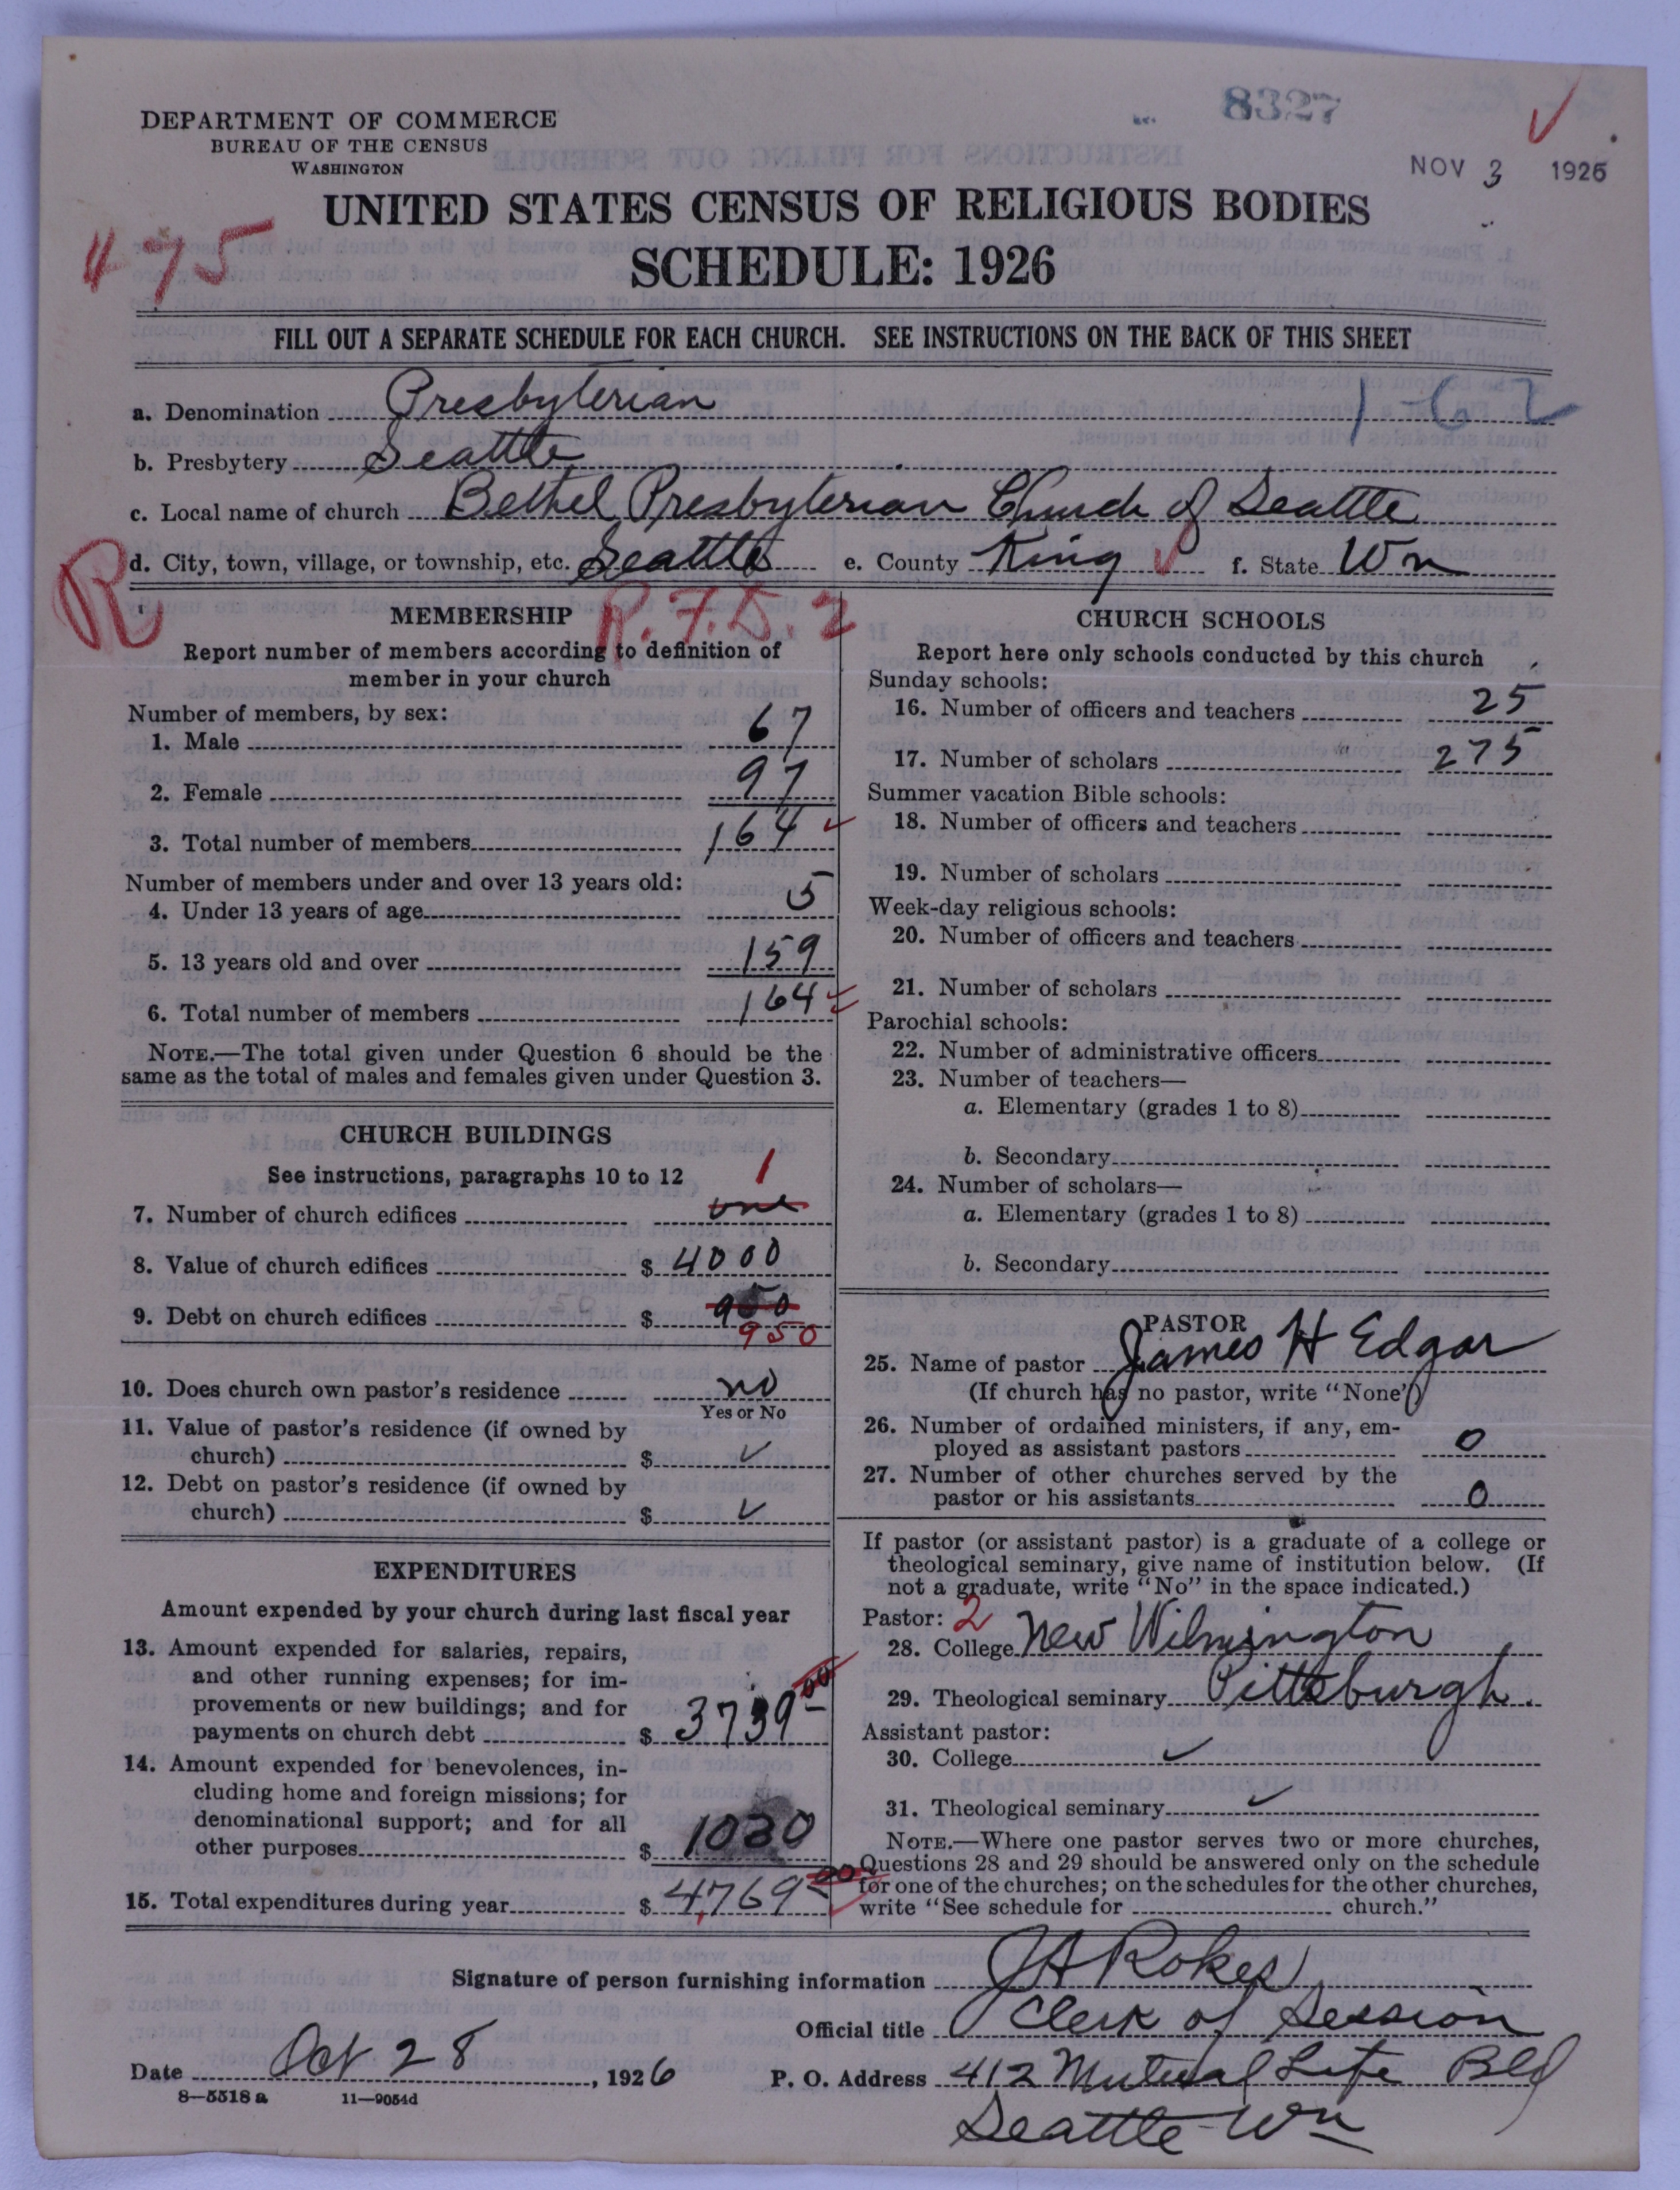 8327
DEPARTMENT OF COMMERCE
BUREAU OF THE CENSUS
WASHINGTON
NOV 3 1926
UNITED STATES CENSUS OF RELIGIOUS BODIES
475
SCHEDULE: 1926
FILL OUT A SEPARATE SCHEDULE FOR EACH CHURCH. SEE INSTRUCTIONS ON THE BACK OF THIS SHEET
a. Denomination Presbyterian 1-62
b. Presbytery Seattle
c. Local name of church Bethel Presbyterian Church of Seattle
R
d. City, town, village, or township, etc. Seattle e. County King f. State Wn
R.F.D. 2
MEMBERSHIP
Report number of members according to definition of
member in your church
Number of members, by sex:
1. Male 67
2. Female 97
3. Total number of members 164
Number of members under and over 13 years old:
4. Under 13 years of age 5
5. 13 years old and over 159
6. Total number of members 164
NOTE.—The total given under Question 6 should be the
same as the total of males and females given under Question 3.
CHURCH BUILDINGS
See instructions, paragraphs 10 to 12
1
7. Number of church edifices one
8. Value of church edifices $ 4000
9. Debt on church edifices $ 950
950
10. Does church own pastor's residence no
Yes or No
11. Value of pastor's residence (if owned by
church) $ ✓
12. Debt on pastor's residence (if owned by
church) $ ✓
EXPENDITURES
Amount expended by your church during last fiscal year
13. Amount expended for salaries, repairs,
and other running expenses; for im-
provements or new buildings; and for
payments on church debt $ 3739 00
14. Amount expended for benevolences, in-
cluding home and foreign missions; for
denominational support; and for all
other purposes $ 1030
15. Total expenditures during year $ 4769 00
CHURCH SCHOOLS
Report here only schools conducted by this church
Sunday schools:
16. Number of officers and teachers 25
17. Number of scholars 275
Summer vacation Bible schools:
18. Number of officers and teachers
19. Number of scholars
Week-day religious schools:
20. Number of officers and teachers
21. Number of scholars
Parochial schools:
22. Number of administrative officers
23. Number of teachers—
a. Elementary (grades 1 to 8)
b. Secondary
24. Number of scholars—
a. Elementary (grades 1 to 8)
b. Secondary
PASTOR
25. Name of pastor James H Edgar
(If church has no pastor, write "None")
26. Number of ordained ministers, if any, em-
ployed as assistant pastors 0
27. Number of other churches served by the
pastor or his assistants 0
If pastor (or assistant pastor) is a graduate of a college or
theological seminary, give name of institution below. (If
not a graduate, write "No" in the space indicated.)
Pastor: 2
28. College New Wilmington
29. Theological seminary Pittsburgh.
Assistant pastor:
30. College ✓
31. Theological seminary ✓
NOTE.—Where one pastor serves two or more churches,
Questions 28 and 29 should be answered only on the schedule
for one of the churches; on the schedules for the other churches,
write "See schedule for church."
Signature of person furnishing information J H Rokes
Official title Clerk of Session
Date Oct 28, 1926 P. O. Address 412 Mutual Life Bld
8—5518a 11—9054d
Seattle Wn